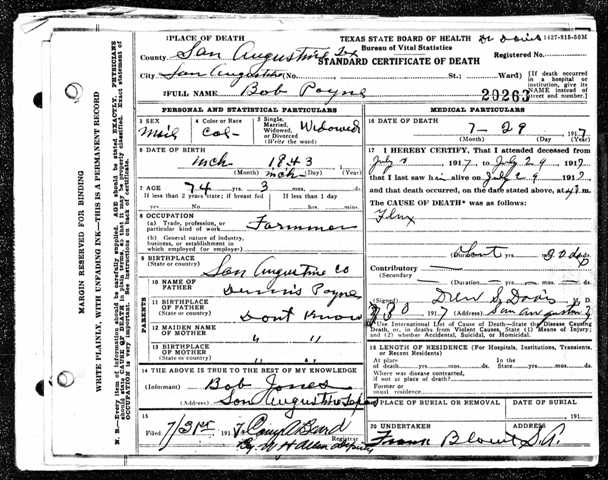 MARGIN RESERVED FOR BINDING
WRITE PLAINLY, WITH UNFADING INK—THIS IS A PERMANENT RECORD
N. B.—Every item of information should be carefully supplied. AGE should be stated EXACTLY. PHYSICIANS should state CAUSE OF DEATH in plain terms, so that it may be properly classified. Exact statement of OCCUPATION is very important. See instructions on back of certificate.
1 PLACE OF DEATH
TEXAS STATE BOARD OF HEALTH
1427-915-50M
County San Augustine Tex
Bureau of Vital Statistics
Registered No.
STANDARD CERTIFICATE OF DEATH
City San Augustine No. St.; Ward)
[If death occurred in a hospital or institution, give its NAME instead of street and number.]
2 FULL NAME Bob Payne
20263
PERSONAL AND STATISTICAL PARTICULARS
3 SEX
Male
4 Color or Race
Col-
5 Single, Married, Widowed, or Divorced (Write the word)
Widowed
6 DATE OF BIRTH
Mch 1843
(Month) (Day) (Year)
Mch
7 AGE
74 yrs. 3 mos. ds.
If less than 2 years state; if breast fed
If less than 1 day
Yes No hrs. min.
8 OCCUPATION
(a) Trade, profession, or particular kind of work
Farmmer
(b) General nature of industry, business, or establishment in which employed (or employer)
9 BIRTHPLACE
(State or country)
San Augustine Co
PARENTS
10 NAME OF FATHER
Dennis Payne
11 BIRTHPLACE OF FATHER
(State or country)
Dont Know
12 MAIDEN NAME OF MOTHER
" "
13 BIRTHPLACE OF MOTHER
(State or country)
" "
14 THE ABOVE IS TRUE TO THE BEST OF MY KNOWLEDGE
(Informant) Bob Jones
(Address) San Augustine Texas
15
Filed 7/31st 191 7
Registrar
By W H Allen Deputy
MEDICAL PARTICULARS
16 DATE OF DEATH
7-29 1917
(Month) (Day) (Year)
17 I HEREBY CERTIFY, That I attended deceased from
July 1917 to July 29 1917
that I last saw him alive on July 29 1917
and that death occurred, on the date stated above, at m.
The CAUSE OF DEATH* was as follows:
Flux
yrs. 20 days
Contributory
(Duration) yrs. mos. ds.
(Signed) Drew S Davis M. D.
7 30 1917 San Augustine
*Use International List of Cause of Death—State the Disease Causing Death, or, in deaths from Violent Causes, State (1) Means of Injury; and (2) whether Accidental, Suicidal, or Homicidal.
18 LENGTH OF RESIDENCE (For Hospitals, Institutions, Transients, or Recent Residents)
At place of death yrs. mos. ds.
In the State yrs. mos. ds.
Where was disease contracted, if not at place of death?
Former or usual residence
19 PLACE OF BURIAL OR REMOVAL
DATE OF BURIAL
191
20 UNDERTAKER
ADDRESS
Frank Blount S.A.